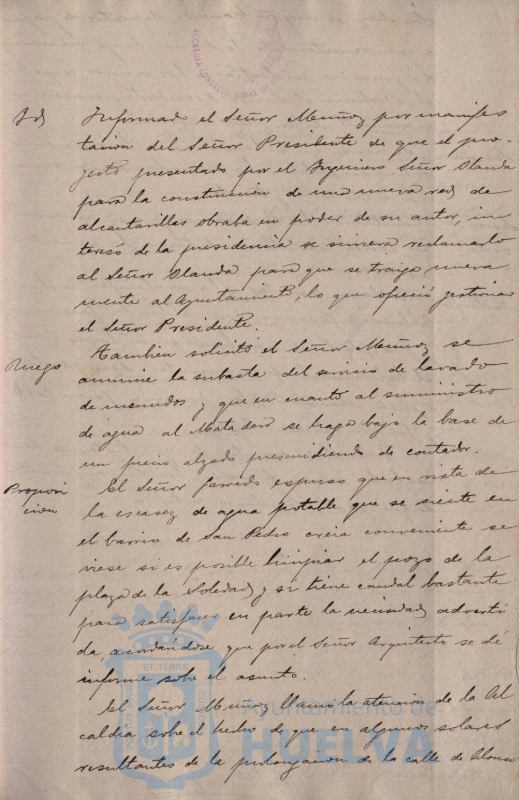 Id Informado el Señor Muñoz por manifes
tacion del Señor Presidente de que el pro-
yecto presentado por el Ingeniero Señor Olanda
para la construccion de una nueva red de
alcantarillas obraba en poder de su autor, in
teresó de la presidencia se sirviera reclamarlo
al Señor Olanda para que se traiga nueva
mente al Ayuntamiento, lo que ofreció gestionar
el Señor Presidente.
Ruego Tambien solicitó el Señor Muñoz se
anuncie la subasta del servicio de lavado
de menudos y que en cuanto al suministro
de agua al Matadero se haga bajo la base de
un precio alzado prescindiendo de contador.
Proposi
cion
El Señor Garrido expuso que en vista de
la escasez de agua potable que se siente en
el barrio de San Pedro creia conveniente se
viese si es posible limpiar el pozo de la
plaza de la Soledad y si tiene caudal bastante
para satisfacer en parte la necesidad adverti
da acordándose que por el Señor Arquitecto se dé
informe sobre el asunto.
El Señor Muñoz llamó la atencion de la Al
caldia sobre el hecho de que en algunos solares
resultantes de la prolongacion de la calle de Alonso
Ayuntamiento de
HUELVA